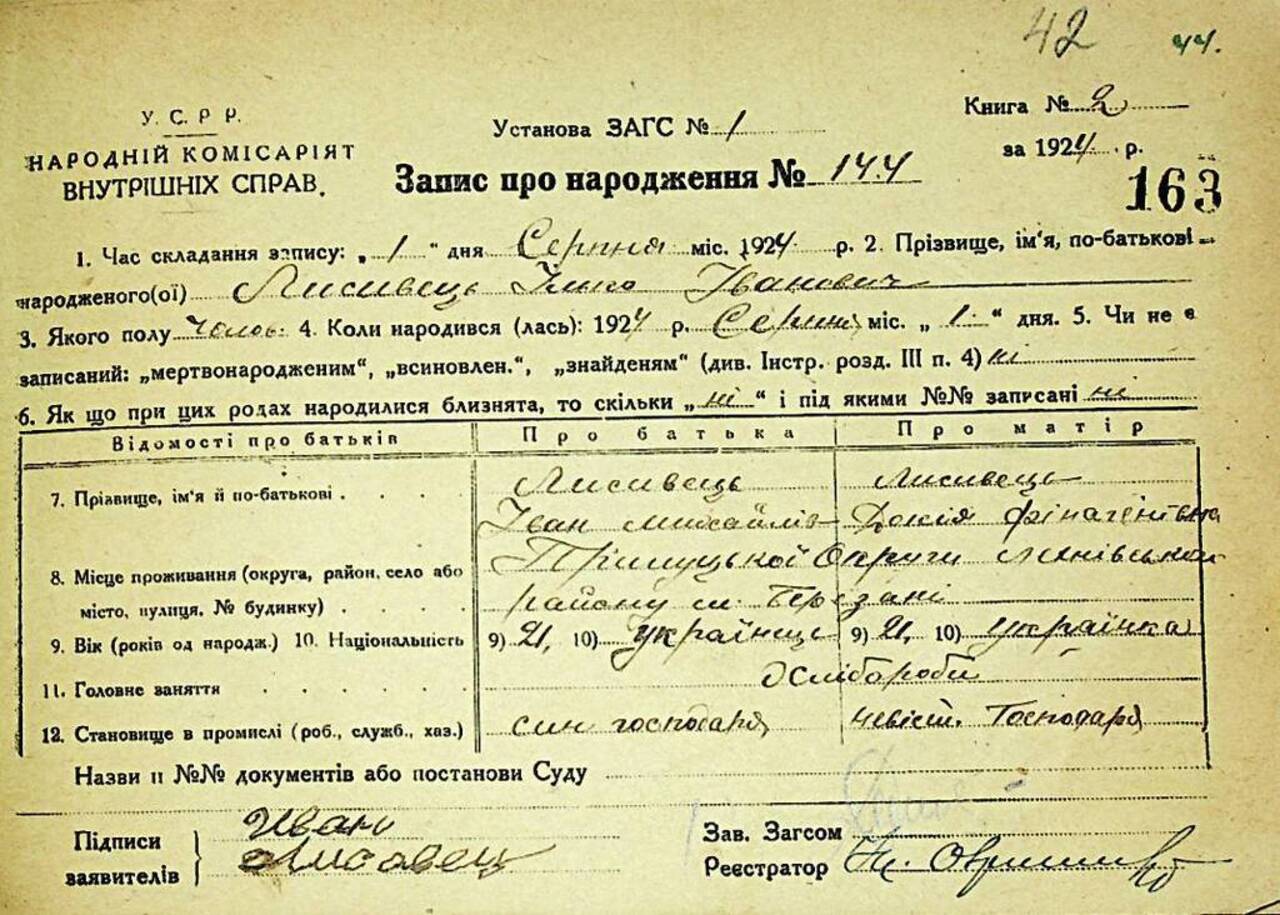 42 44.
У. С. Р Р.
НАРОДНІЙ КОМІСАРІЯТ
ВНУТРІШНІХ СПРАВ.
Установа ЗАГС № 1
Книга № 2
за 1924 р.
Запис про народження № 144
163
1. Час складання запису: „ 1 “ дня Серпня міс. 1924 р. 2. Прізвище, ім'я, по-батькові
народженого(ої) Лисивець Ілько Іванович
3. Якого полу Чолов. 4. Коли народився (лась): 1924 р. Серпня міс. „ 1 “ дня. 5. Чи не є
записаний: „мертвонародженим“, „всиновлен.“, „знайденям“ (див. Інстр. розд. III п. 4) ні
6. Як що при цих родах народилися близнята, то скільки „ ні “ і під якими №№ записані ні
Відомості про батьків Про батька Про матір
7. Прізвище, ім'я й по-батькові . . . Лисивець Лисивець
Іван Михайлів Докія
8. Місце проживання (округа, район, село або Прилуцької Округи
місто, вулиця, № будинку) . . . . району с. Березані
9. Вік (років од народж.) 10. Національність 9) 21, 10) українець 9) 21, 10) українка
11. Головне заняття . . . . . . Хлібороби
12. Становище в промислі (роб., служб., хаз.) син господаря невіст. Господаря
Назви и №№ документів або постанови Суду
Підписи
заявителів
Иван
Лисавец
Зав. Загсом
Реєстратор